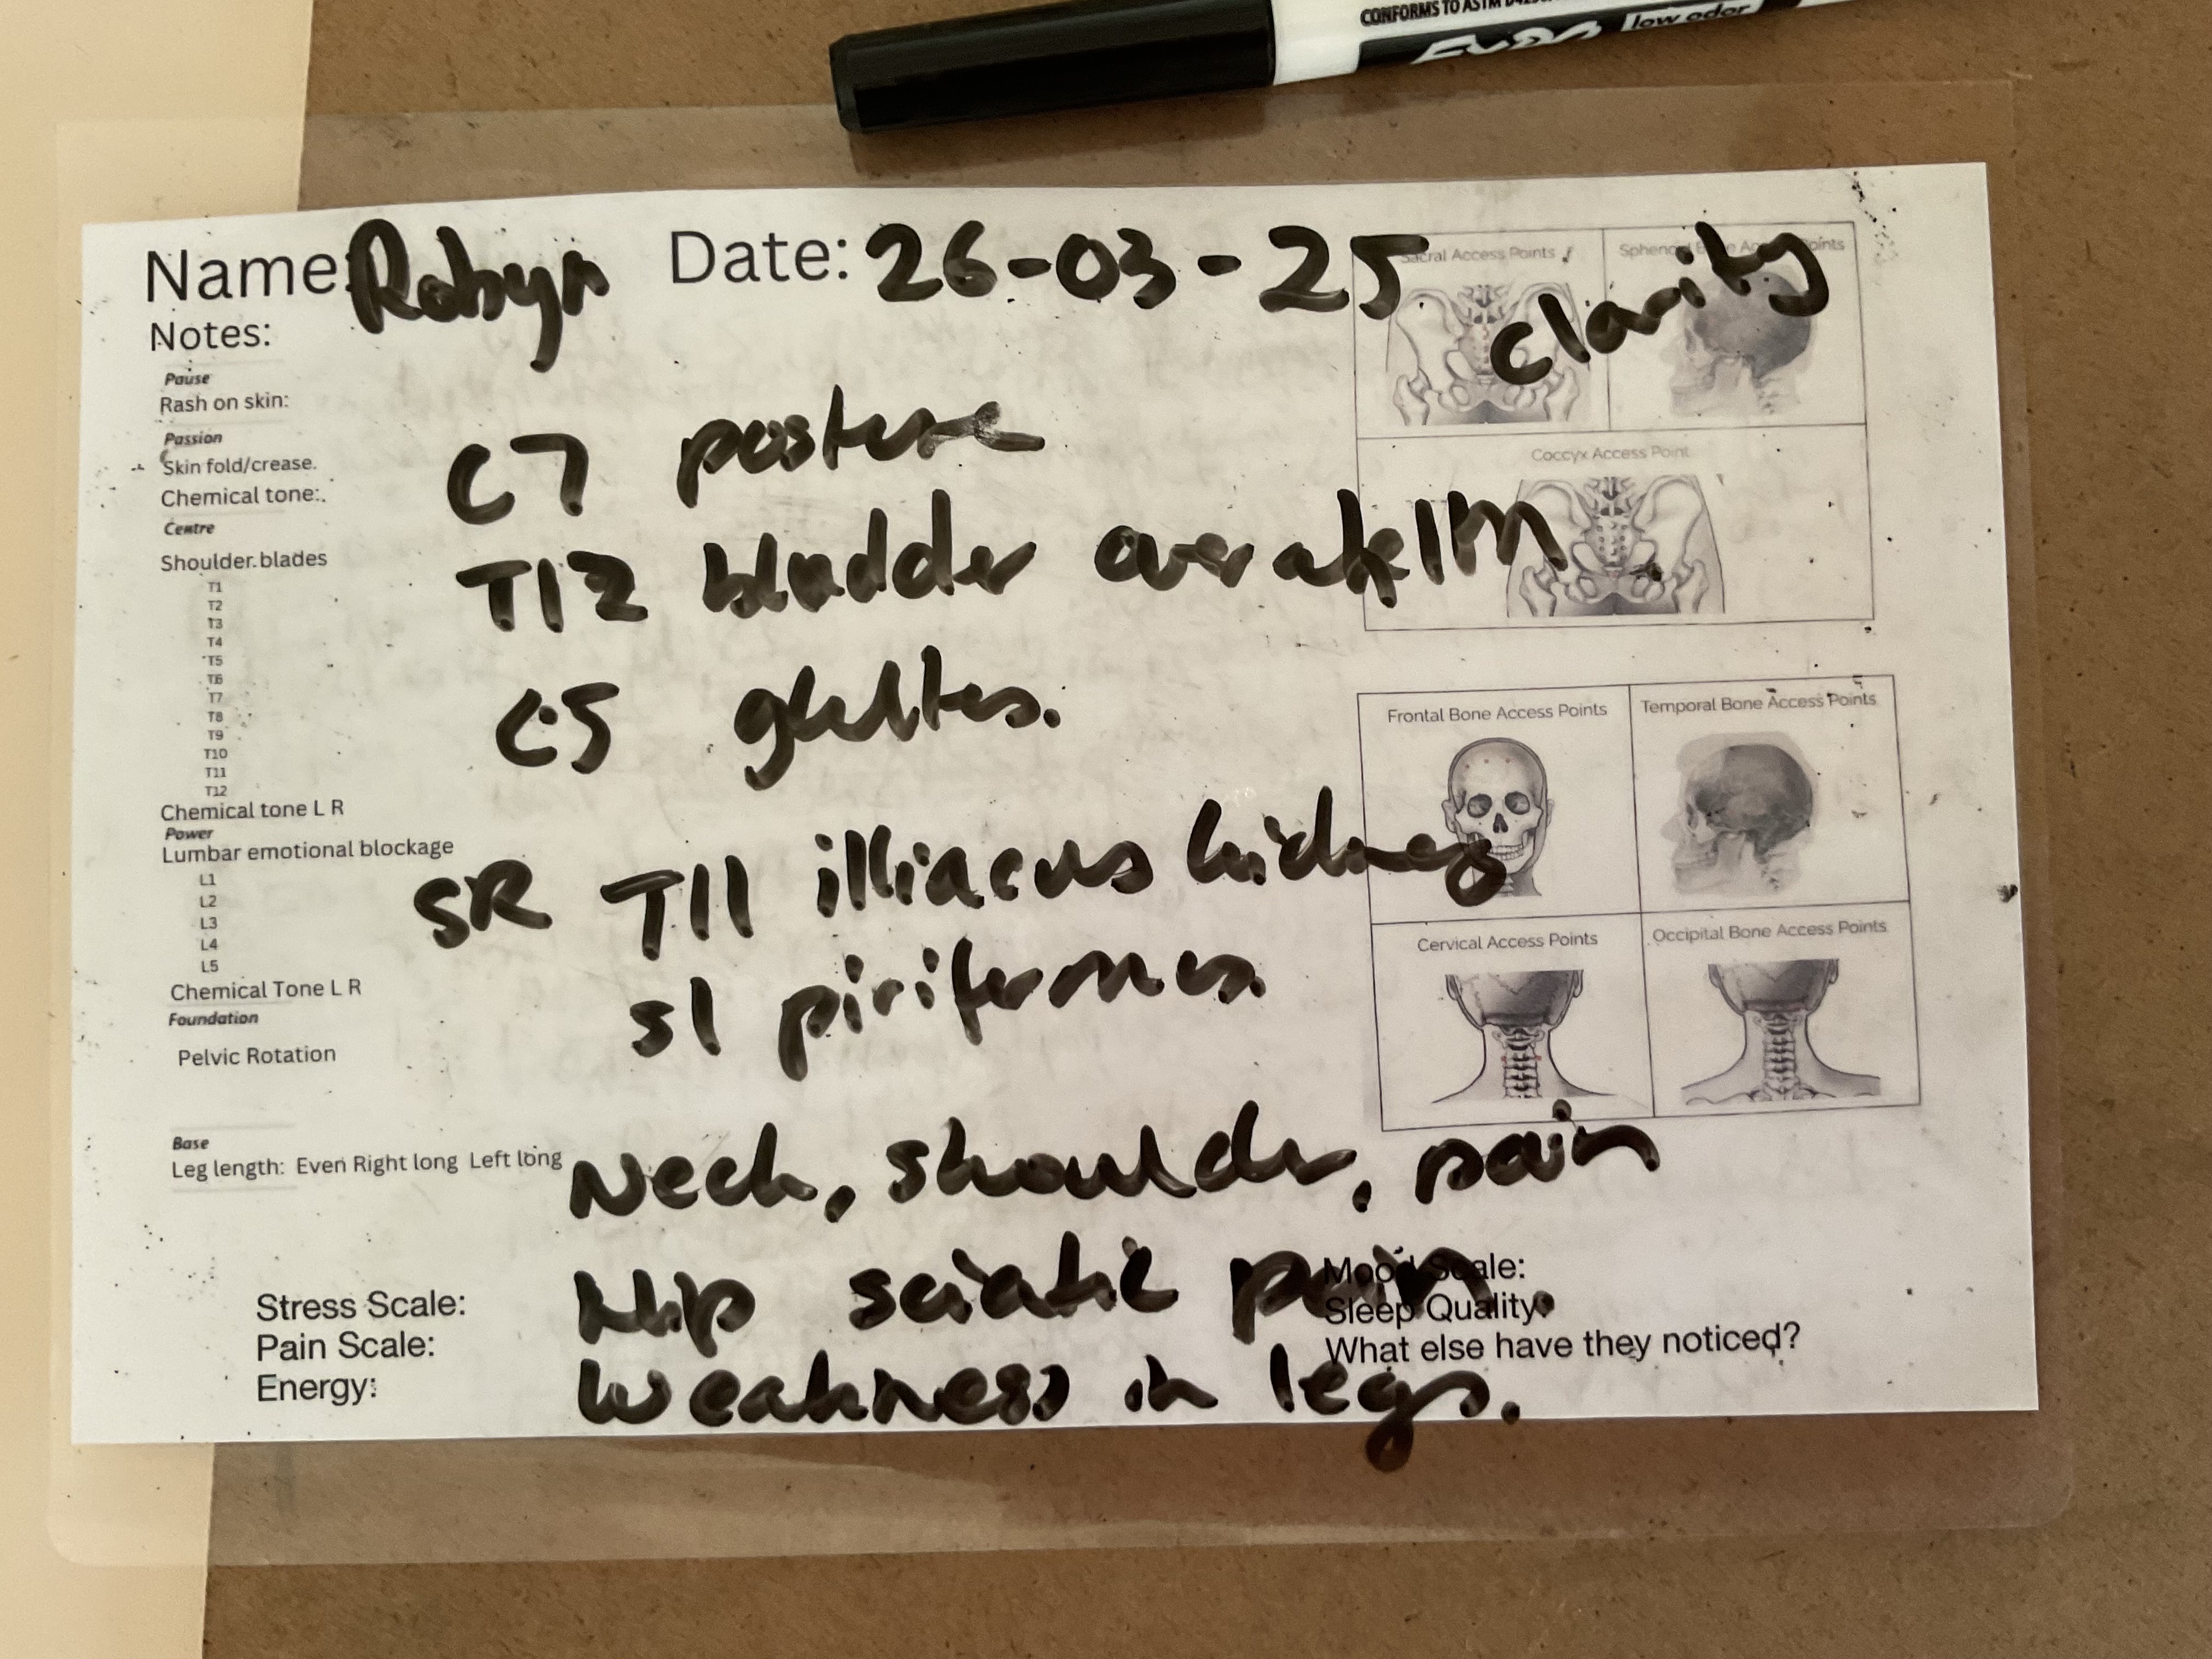 CONFORMS TO ASTM
low odor
Name: Robyn Date: 26-03-25 clarity
Notes:
Pause
Rash on skin:
Passion
Skin fold/crease.
Chemical tone:
C7 posture
Centre
Shoulder blades
T12 bladder
T1
T2
T3
T4
T5
T6
T7
T8
T9
T10
T11
T12
C5
Chemical tone L R
Power
Lumbar emotional blockage
L1
L2
L3
L4
L5
SR T11 illiacus kidney
Chemical Tone L R
S1
Foundation
Pelvic Rotation
Base
Leg length: Even Right long Left long
Neck, shoulder, pain
Hip sciatic pain.
weakness in legs.
Stress Scale:
Pain Scale:
Energy:
Mood Scale:
Sleep Quality:
What else have they noticed?
Sacral Access Points
Sphenoid Bone Access Points
Coccyx Access Point
Frontal Bone Access Points
Temporal Bone Access Points
Cervical Access Points
Occipital Bone Access Points